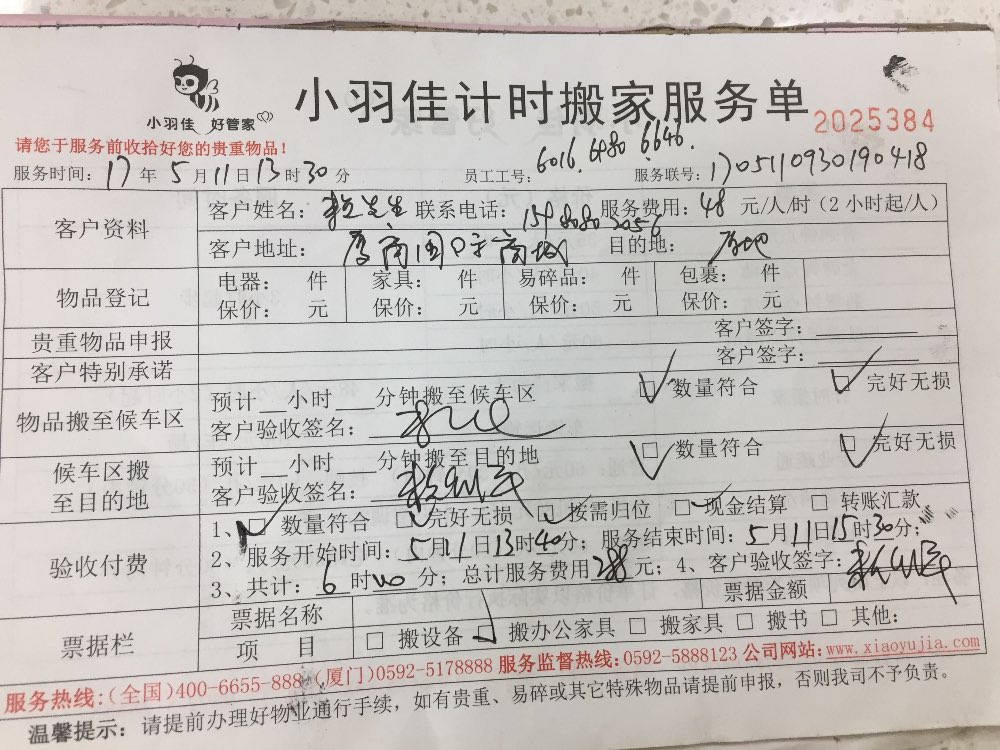 小羽佳 好管家
小羽佳计时搬家服务单
2025384
请您于服务前收拾好您的贵重物品!
服务时间: 17 年 5 月 11 日 13 时 30 分 员工工号: 6016. 6480 6646. 服务联号: 170511093019 0418
客户资料
客户姓名: 先生 联系电话: 159 8080 2056 服务费用: 48 元/人/时 (2小时起/人)
客户地址: 商 目的地:
物品登记
电器: 件 家具: 件 易碎品: 件 包裹: 件
保价: 元 保价: 元 保价: 元 保价: 元
贵重物品申报 客户签字:
客户特别承诺 客户签字:
物品搬至候车区
预计__小时___分钟搬至候车区 □ 数量符合 □ 完好无损
客户验收签名:
候车区搬至目的地
预计__小时___分钟搬至目的地 □ 数量符合 □ 完好无损
客户验收签名:
验收付费
1、□ 数量符合 □ 完好无损 □ 按需归位 □ 现金结算 □ 转账汇款
2、服务开始时间: 5月11日13时40分; 服务结束时间: 5月11日15时30分;
3、共计: 6 时 00 分; 总计服务费用 288 元; 4、客户验收签字:
票据栏
票据名称 票据金额
项 目 □ 搬设备 □ 搬办公家具 □ 搬家具 □ 搬书 □ 其他:
服务热线:(全国)400-6655-888 (厦门)0592-5178888 服务监督热线:0592-5888123 公司网站:www.xiaoyujia.com
温馨提示: 请提前办理好物业通行手续, 如有贵重、易碎或其它特殊物品请提前申报, 否则我司不予负责。